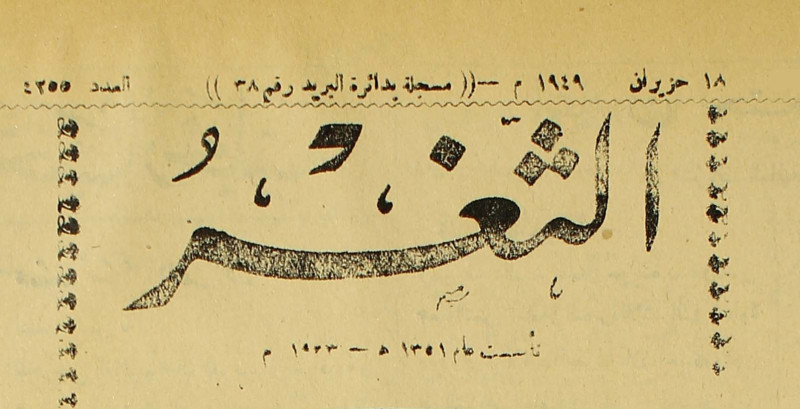 ١٨ حزيران ١٩٤٩ م —(( مسجلة بدائرة البريد رقم ٣٨ )) العدد ٤٢٥٥
الثغر
تأسست عام ١٣٥١ ه — ١٩٣٣ م